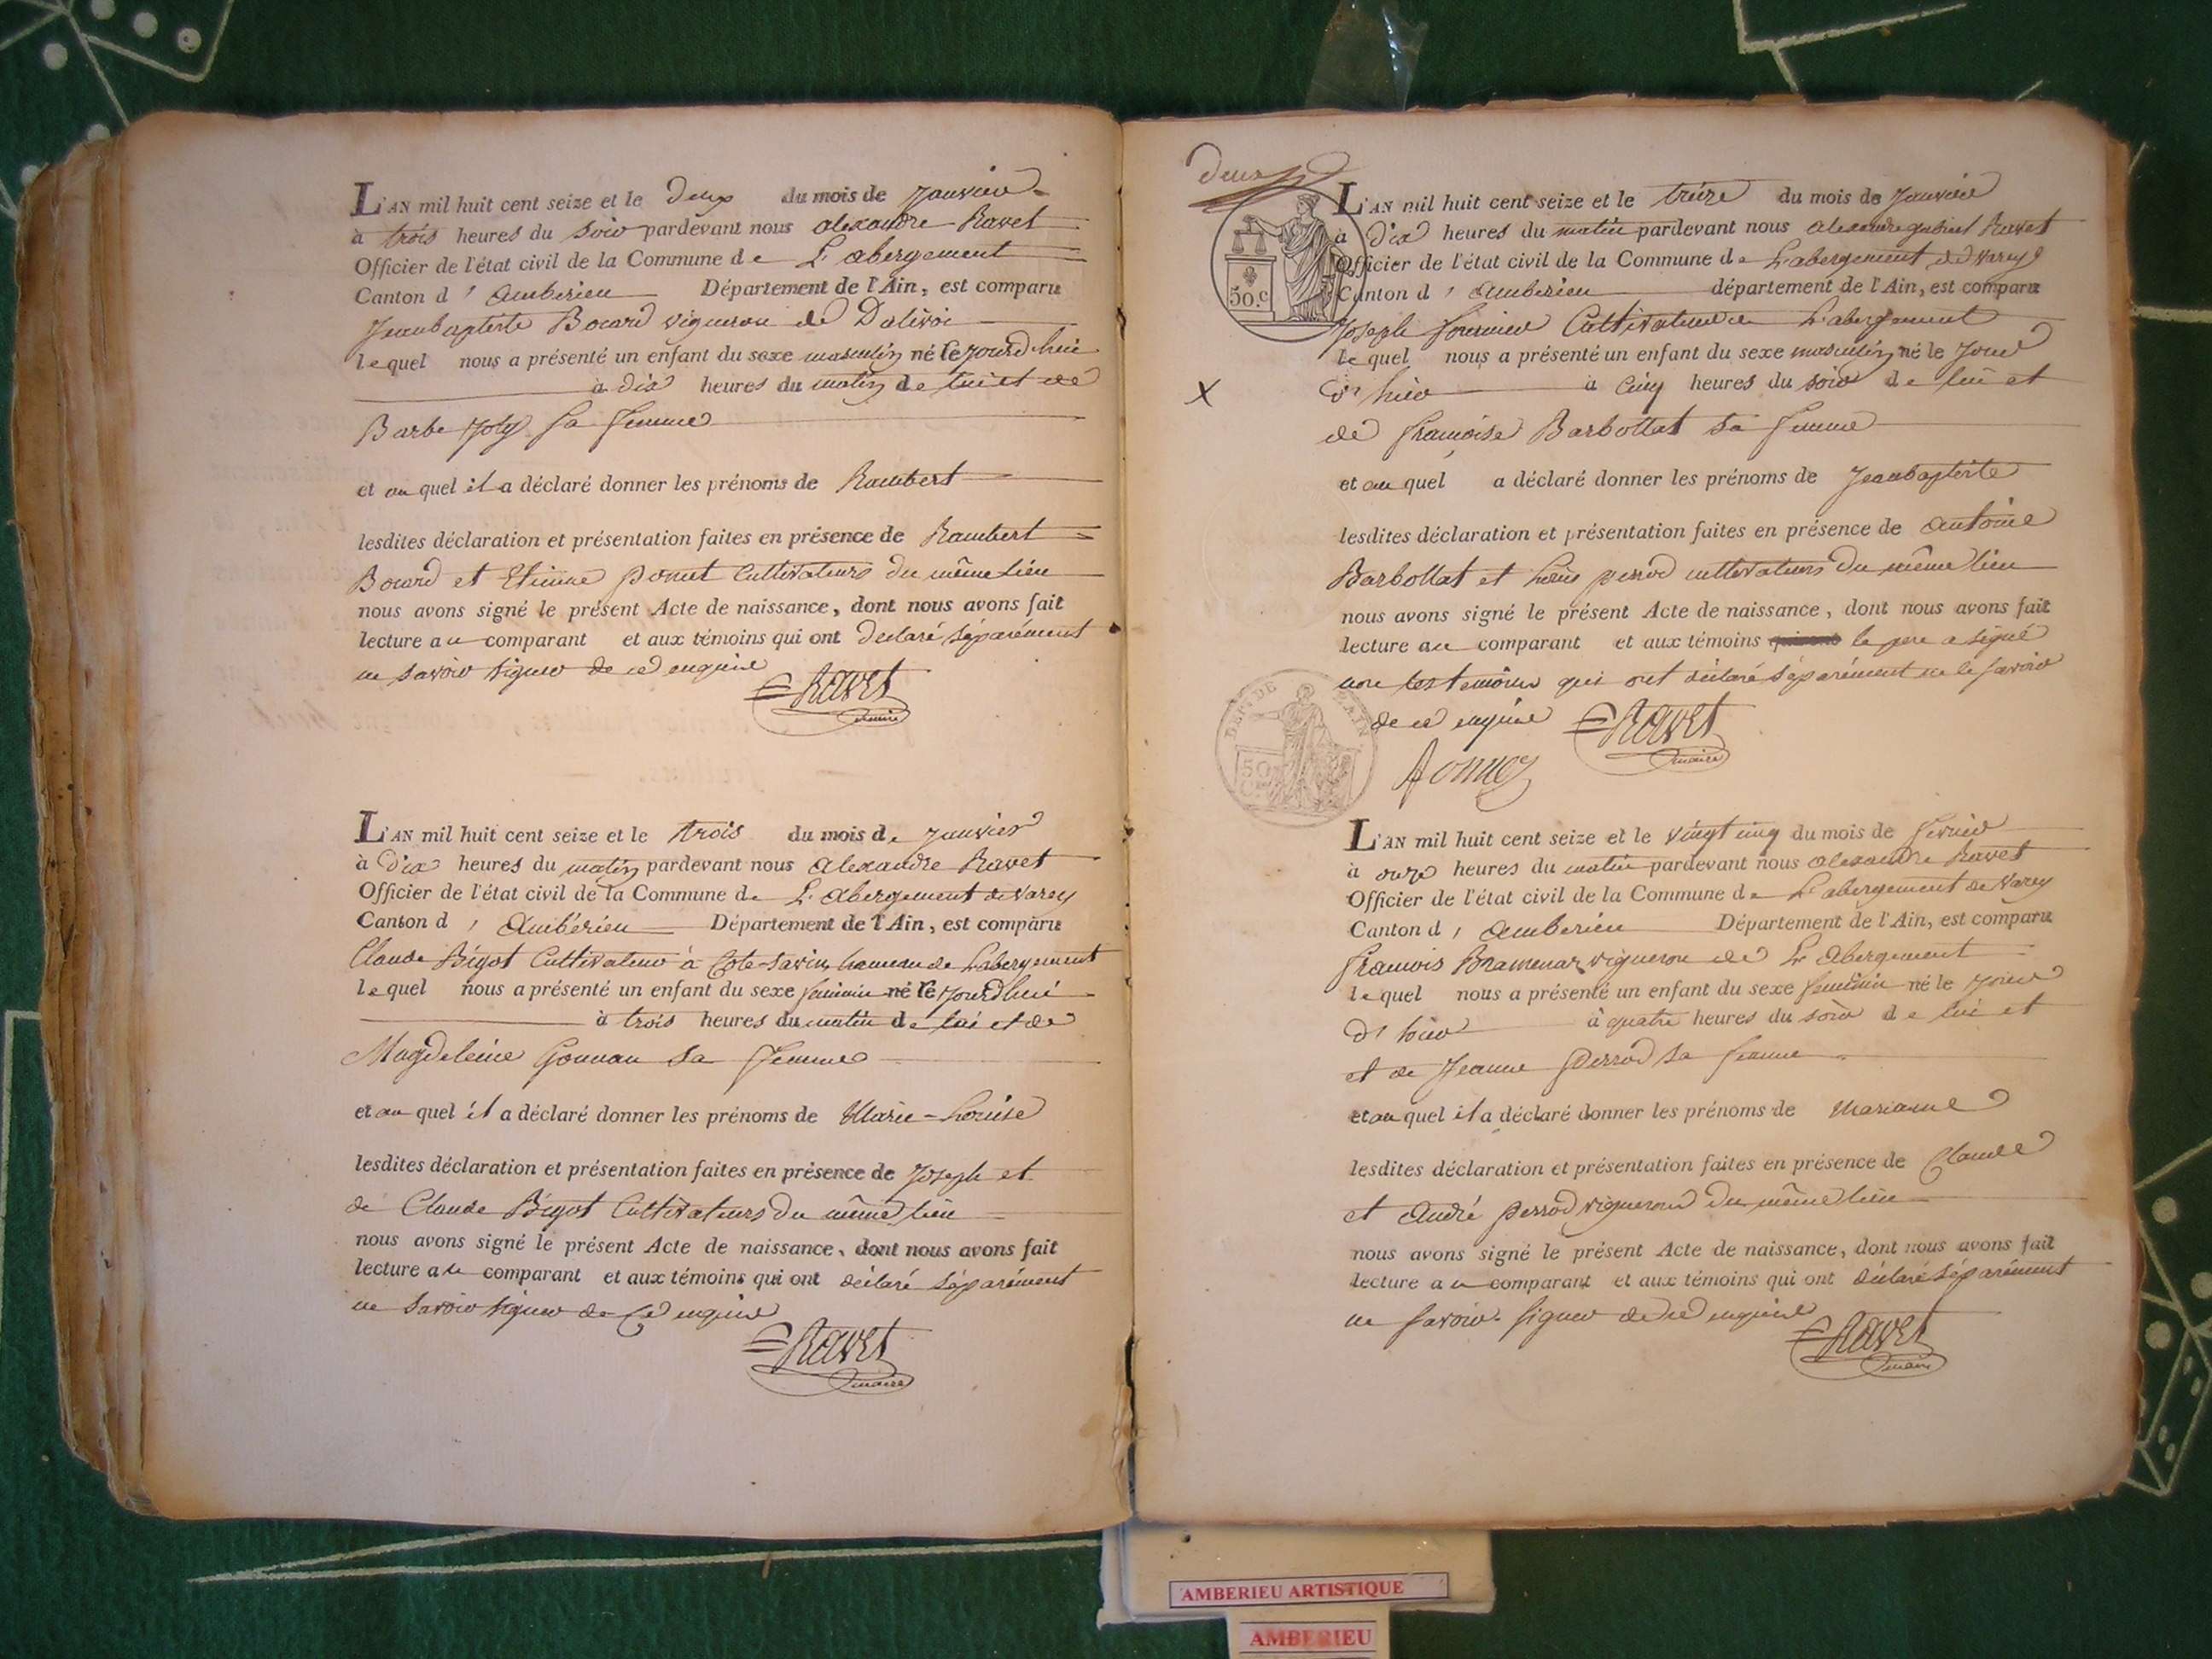 L'AN mil huit cent seize et le deux du mois de Janvier
à trois heures du soir pardevant nous alexandre Ravet
Officier de l'état civil de la Commune de L'abergement
Canton d'amberieu Département de l'Ain, est comparu
Jeanbaptiste Bocard vigneron de Dalivoi
lequel nous a présenté un enfant du sexe masculin né le jourd'hui
à dix heures du matin de lui et de
Barbe Joly sa femme
et au quel il a déclaré donner les prénoms de Rambert
lesdites déclaration et présentation faites en présence de Rambert
Bocard et Etienne ponut Cultivateurs du même lieu
nous avons signé le présent Acte de naissance, dont nous avons fait
lecture au comparant et aux témoins qui ont declaré séparément
ne savoir signer de ce enquis
Ravet
maire
L'AN mil huit cent seize et le trois du mois de janvier
à dix heures du matin pardevant nous alexandre Ravet
Officier de l'état civil de la Commune de L'abergement de varey
Canton d'Ambérieu Département de l'Ain, est comparu
Claude Bigot Cultivateur à Cote-savin hameau de Labergement
lequel nous a présenté un enfant du sexe feminin né le jourd'hui
à trois heures du matin de lui et de
Magdeleine Gounon sa femme
et au quel il a déclaré donner les prénoms de Marie-Louise
lesdites déclaration et présentation faites en présence de Joseph et
de Claude Bigot Cultivateurs du même lieu
nous avons signé le présent Acte de naissance, dont nous avons fait
lecture au comparant et aux témoins qui ont déclaré séparément
ne savoir signer de ce enquis
Ravet
maire
deux
50.c
L'AN mil huit cent seize et le treize du mois de Janvier
à dix heures du matin pardevant nous alexandre gabriel Ravet
Officier de l'état civil de la Commune de Labergement de varey
Canton d'amberieu département de l'Ain, est comparu
Joseph fournier Cultivateur de Labergement
lequel nous a présenté un enfant du sexe masculin né le jour
d'hier à cinq heures du soir de lui et
X
de françoise Barbollat sa femme
et au quel a déclaré donner les prénoms de Jeanbaptiste
lesdites déclaration et présentation faites en présence de antoine
Barbollat et Louis perrod cultivateurs du même lieu
nous avons signé le présent Acte de naissance, dont nous avons fait
lecture au comparant et aux témoins le pere a signé
non les temoins qui ont déclaré séparément ne le savoir
de ce enquis Ravet
maire
DEP. DE L'AIN
50
C
L'AN mil huit cent seize et le vingt cinq du mois de fevrier
à onze heures du matin pardevant nous alexandre Ravet
Officier de l'état civil de la Commune de L'abergement de Varey
Canton d'amberieu Département de l'Ain, est comparu
françois vigneron de L'abergement
lequel nous a présenté un enfant du sexe feminin né le jour
d'hier à quatre heures du soir de lui et
et de Jeanne perrod sa femme
et au quel il a déclaré donner les prénoms de Marianne
lesdites déclaration et présentation faites en présence de Claude
et André perrod vignerons du même lieu
nous avons signé le présent Acte de naissance, dont nous avons fait
lecture au comparant et aux témoins qui ont déclaré séparément
ne savoir signer de ce enquis
Ravet
maire
AMBERIEU ARTISTIQUE
AMBERIEU